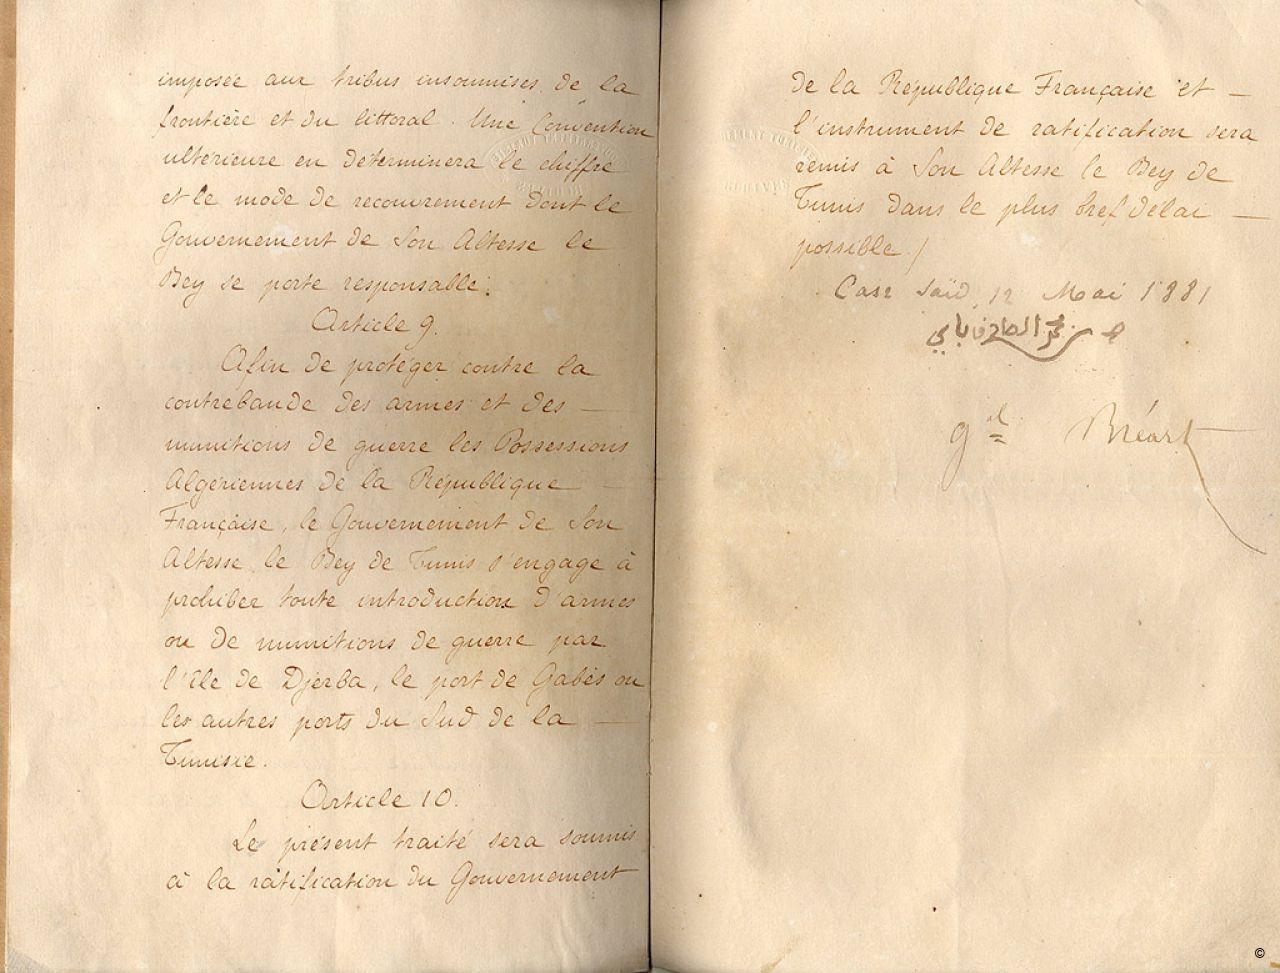 imposée aux tribus insoumises de la
frontière et du littoral. Une Convention
ultérieure en déterminera le chiffre
et le mode de recouvrement dont le
Gouvernement de Son Altesse le
Bey se porte responsable.
Article 9.
Afin de protéger contre la
contrebande des armes et des —
munitions de guerre les Possessions
Algériennes de la République —
Française, le Gouvernement de Son
Altesse le Bey de Tunis s'engage à
prohiber toute introduction d'armes
ou de munitions de guerre par
l'Ile de Djerba, le port de Gabès ou
les autres ports du Sud de la —
Tunisie.
Article 10.
Le présent traité sera soumis
à la ratification du Gouvernement
de la République Française et —
l'instrument de ratification sera
remis à Son Altesse le Bey de
Tunis dans le plus bref délai —
possible./
Casr Saïd, 12 Mai 1881
محمد الصادق باي
gal Bréart
©